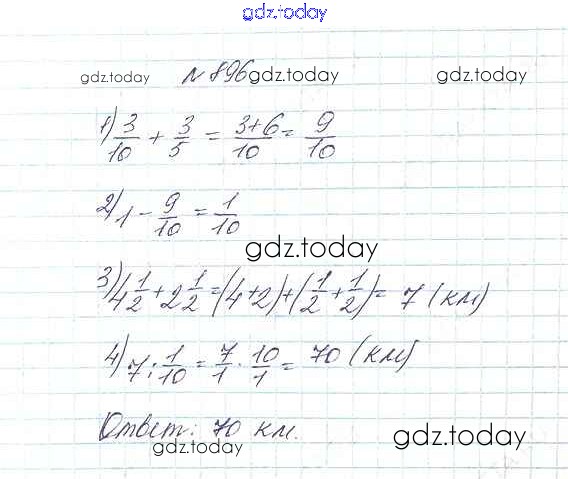 gdz.today
gdz.today №896 gdz.today gdz.today
1) 3/10 + 3/5 = 3+6/10 = 9/10
2) 1 - 9/10 = 1/10
gdz.today
3) 4 1/2 + 2 1/2 = (4+2)+(1/2+1/2) = 7 (км)
4) 7 : 1/10 = 7/1 · 10/1 = 70 (км)
Ответ: 70 км.
gdz.today gdz.today